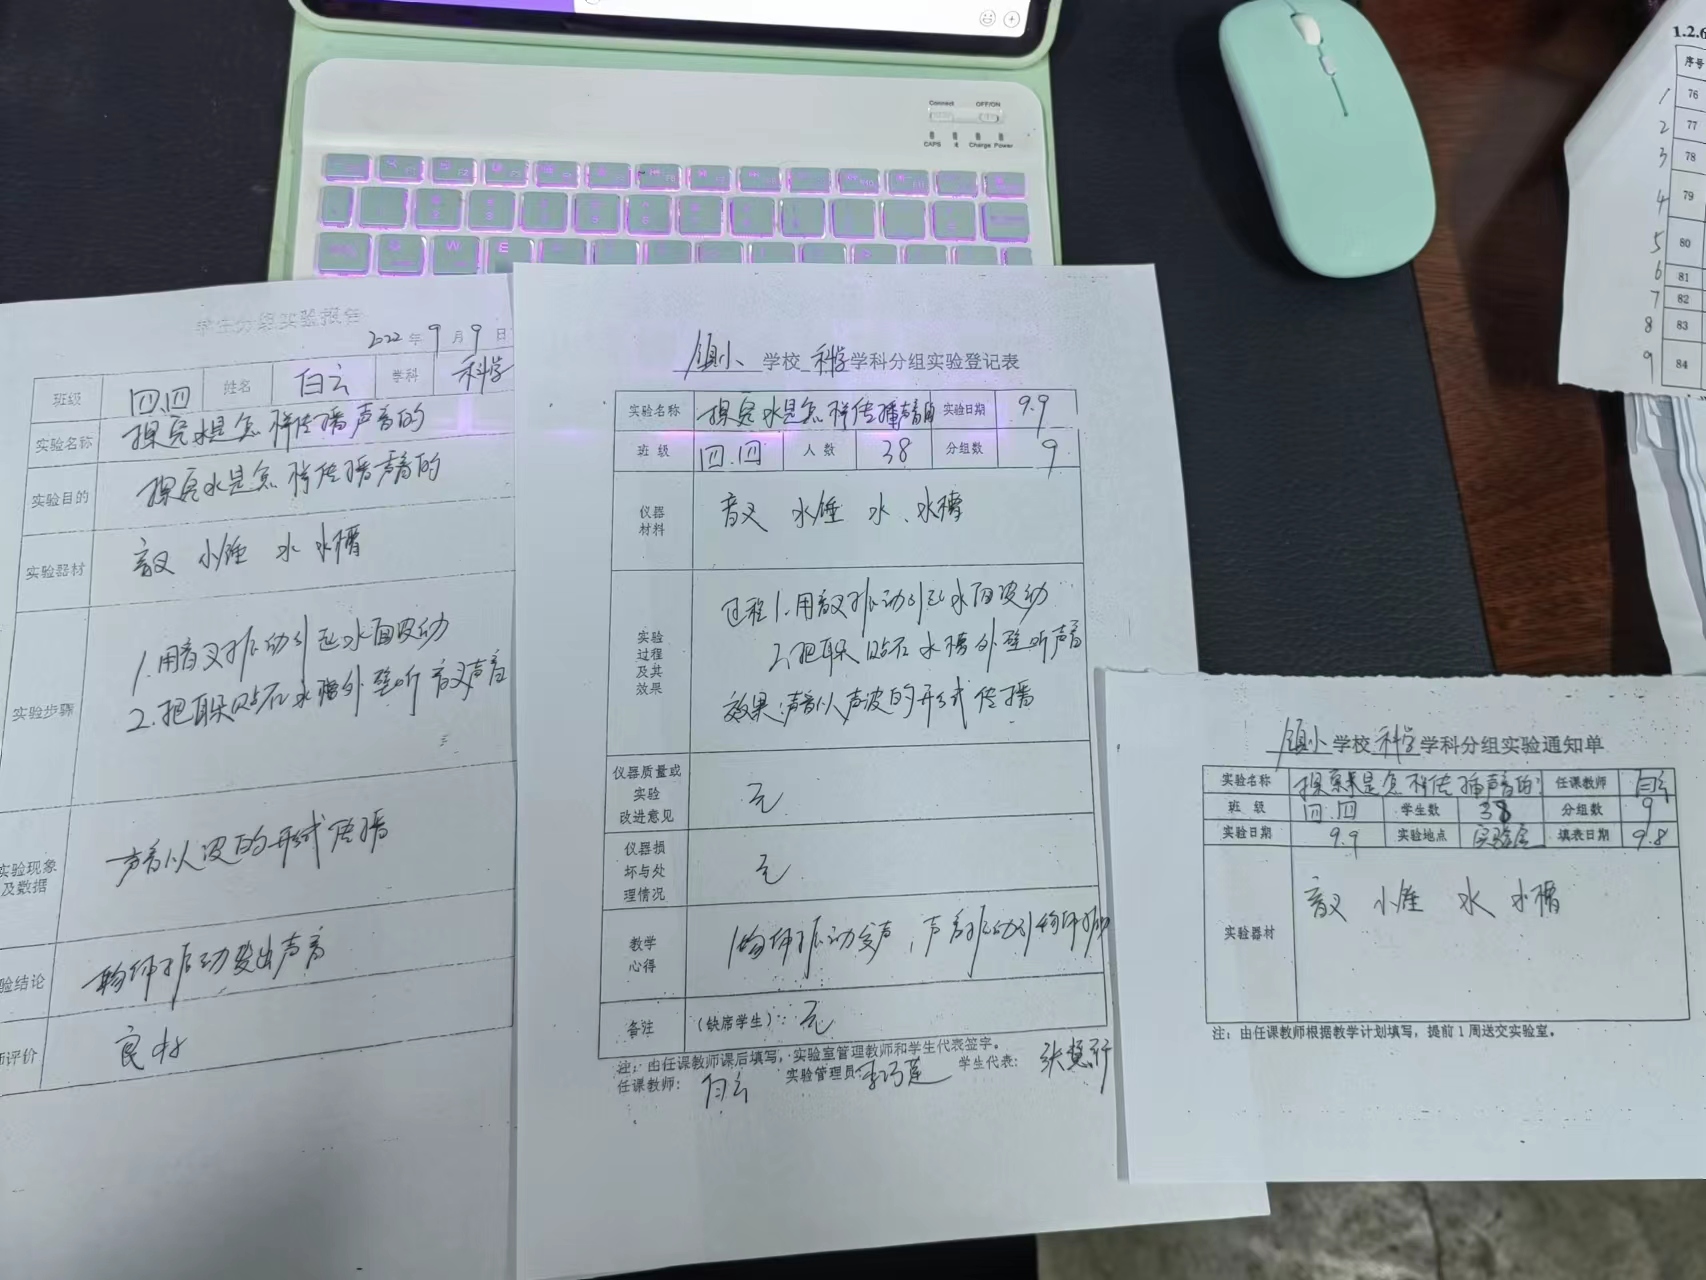 Connect OFF/ON
CAPS Charge Power
W E
学生分组实验报告
2022年9月9日
班级 四.四 姓名 白云 学科 科学
实验名称 探究水是怎样传播声音的
实验目的 探究水是怎样传播声音的
实验器材 音叉 小锤 水 水槽
实验步骤
1.用音叉振动引起水面波动
2.把耳朵贴在水槽外壁听音叉声音
实验现象
及数据
声音以波的形式传播
验结论 物体振动发出声音
师评价 良好
镇小 学校 科学学科分组实验登记表
实验名称 探究水是怎样传播声音的 实验日期 9.9
班 级 四.四 人 数 38 分组数 9
仪器
材料
音叉 水锤 水、水槽
实验
过程
及其
效果
过程1.用音叉振动引起水面波动
2.把耳朵贴在水槽外壁听声音
效果:声音以声波的形式传播
仪器质量或
实验
改进意见
无
仪器损
坏与处
理情况
无
教学
心得
物体振动发声,声音振动引
备注 (缺席学生):无
注:由任课教师课后填写,实验室管理教师和学生代表签字。
任课教师: 白云 实验管理员: 李巧莲 学生代表:
镇小学校 科学学科分组实验通知单
实验名称 探究水是怎样传播声音的 任课教师 白云
班 级 四.四 学生数 38 分组数 9
实验日期 9.9 实验地点 实验室 填表日期 9.8
实验器材 音叉 小锤 水 水槽
注:由任课教师根据教学计划填写,提前1周送交实验室。
1.2.6
序号
1 76
2 77
3 78
4 79
5 80
6 81
7 82
8 83
9 84